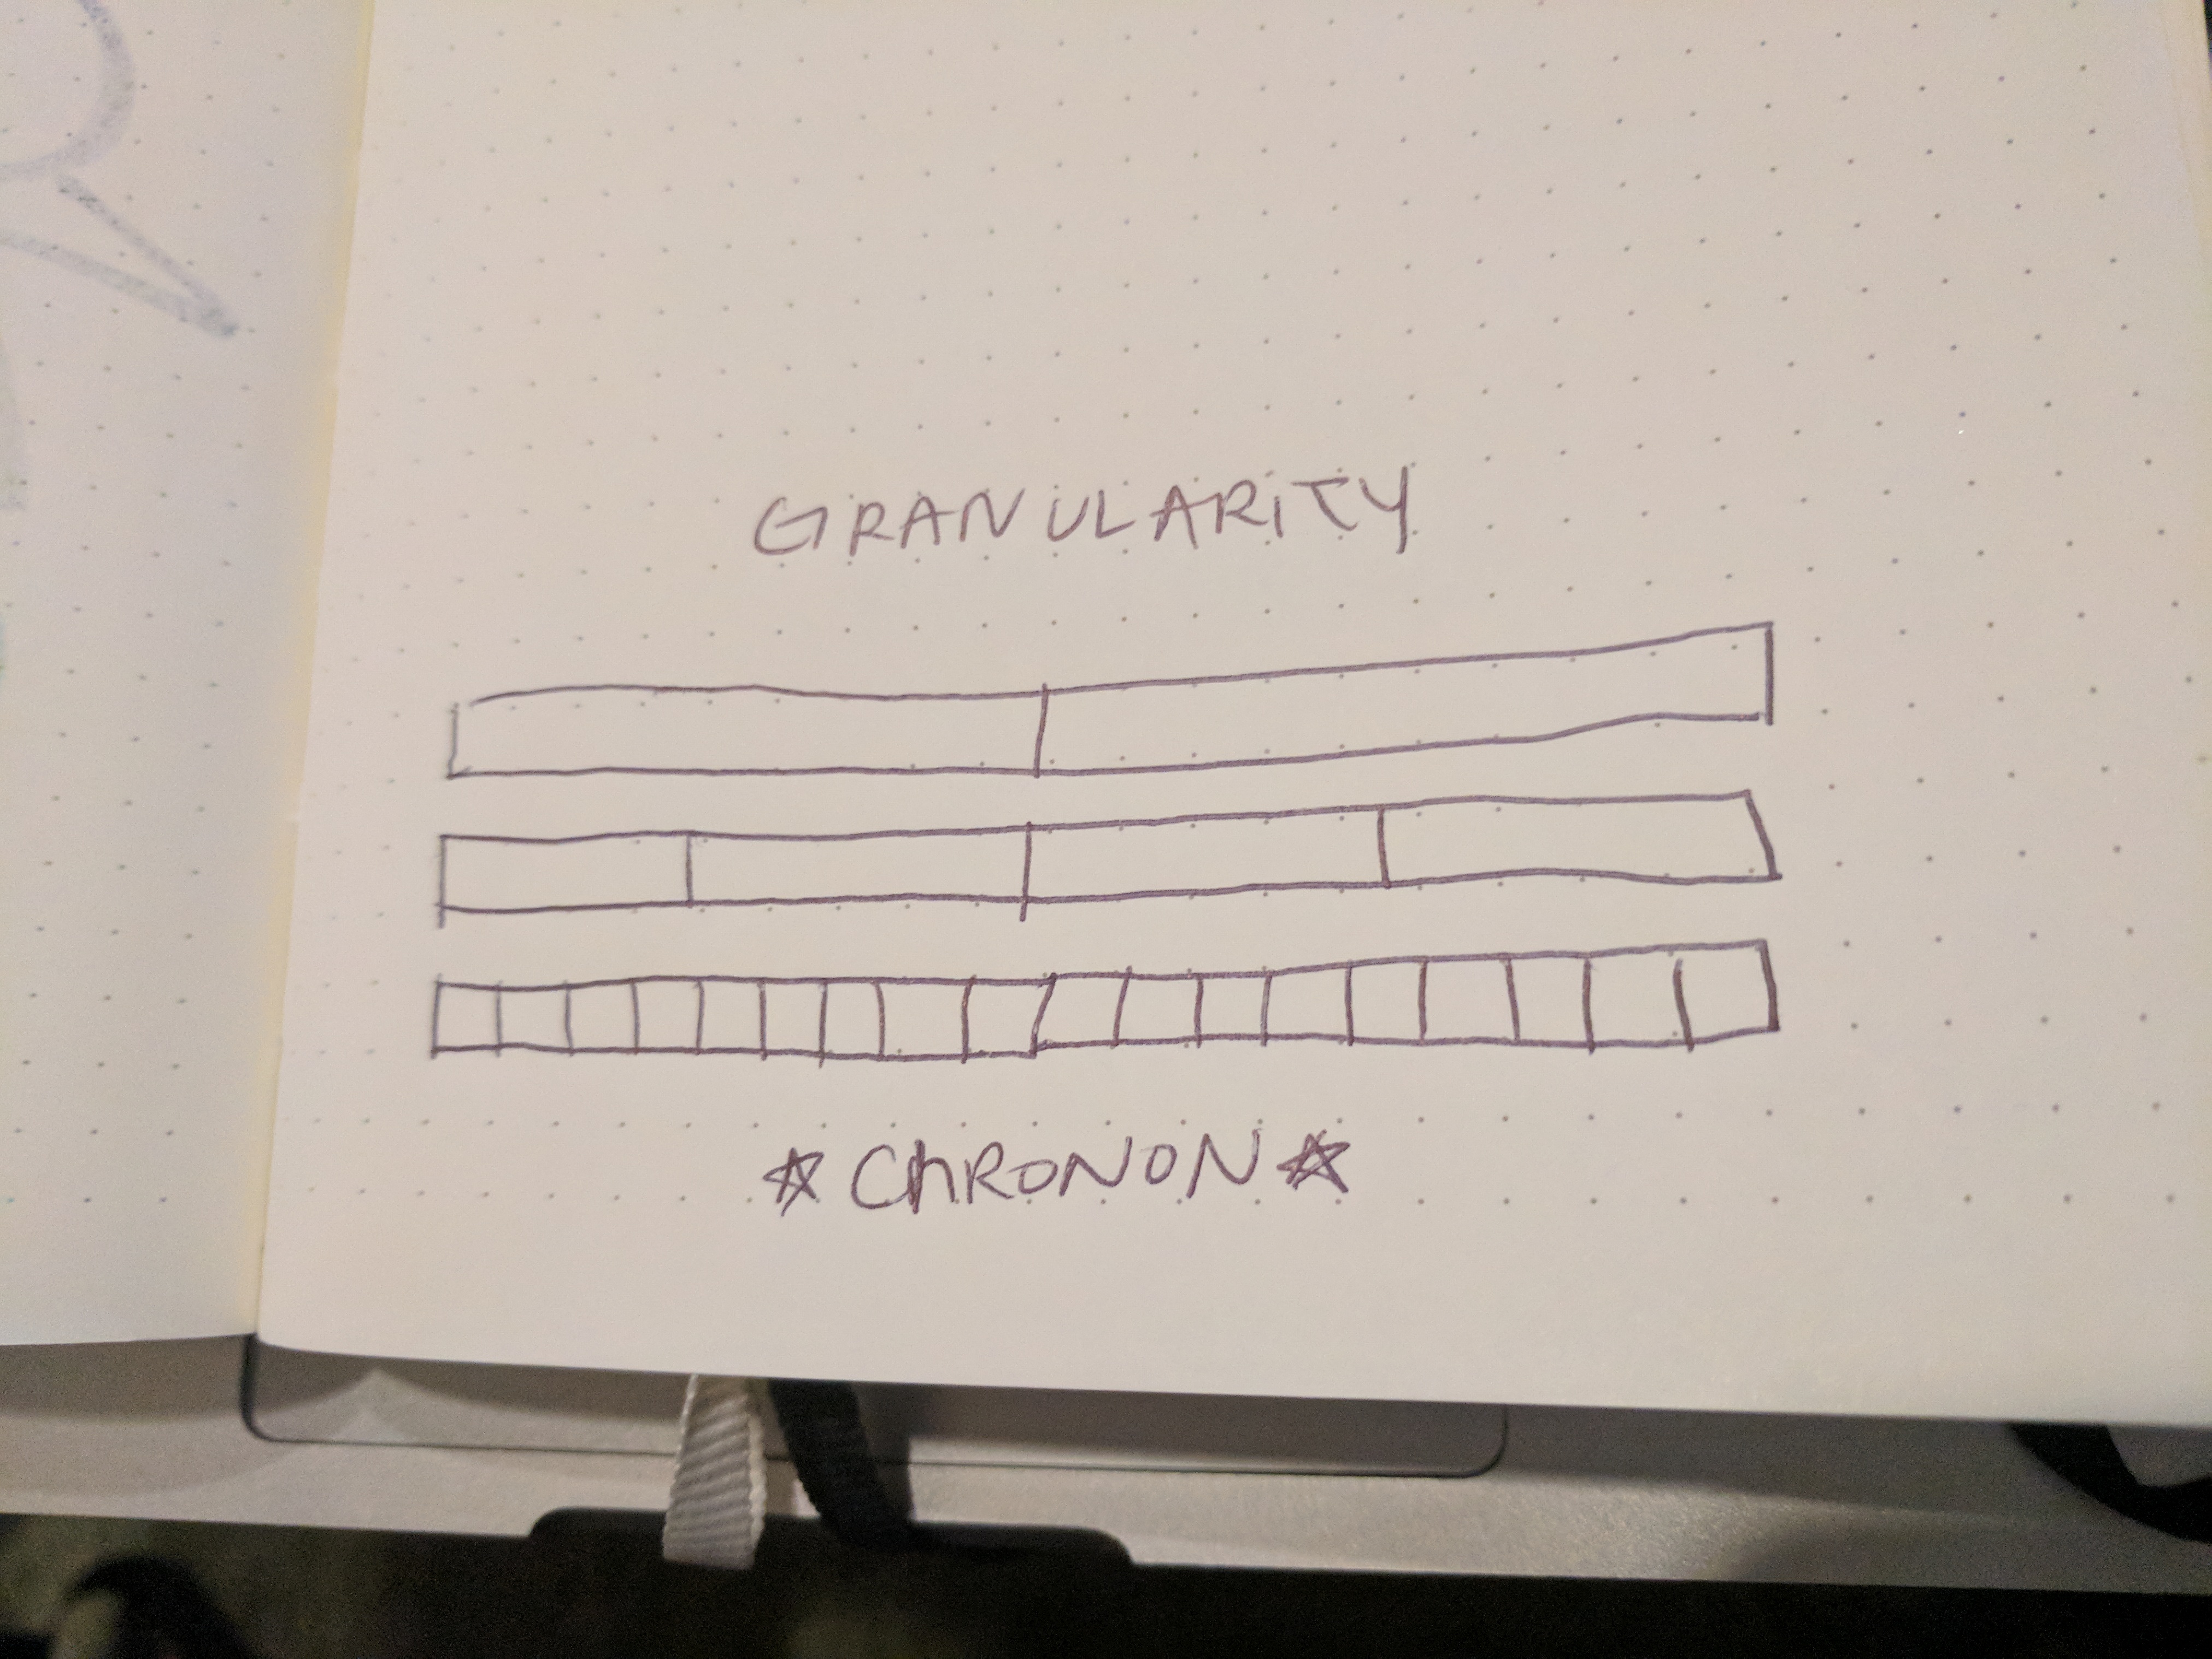 GRANULARITY
☆ChRONON☆